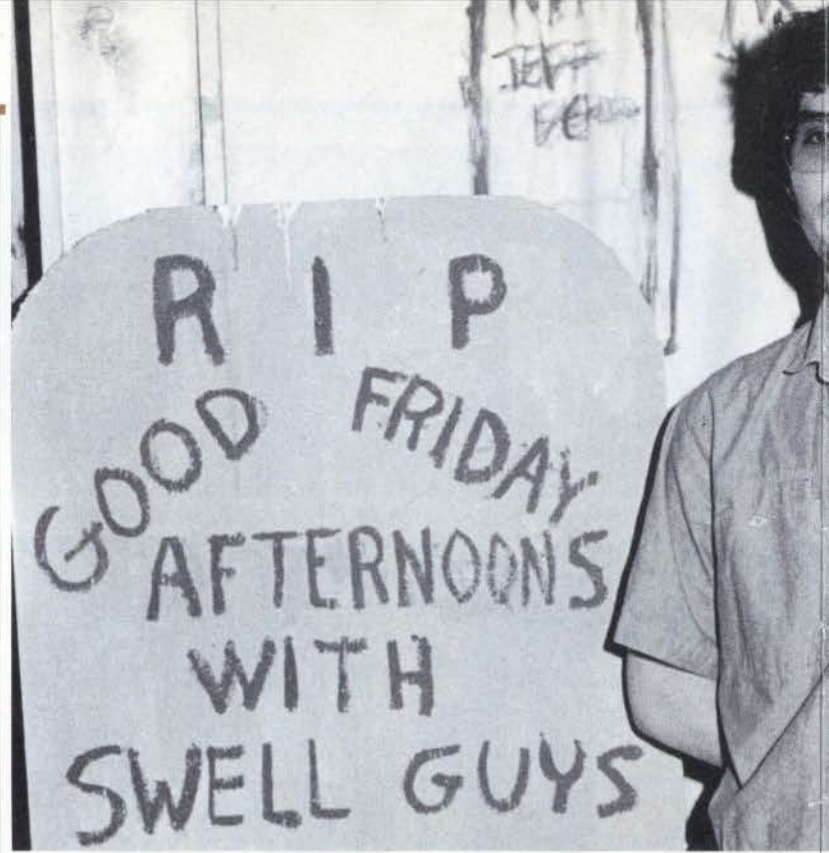 JEFF
R I P
GOOD FRIDAY
AFTERNOONS
WITH
SWELL GUYS